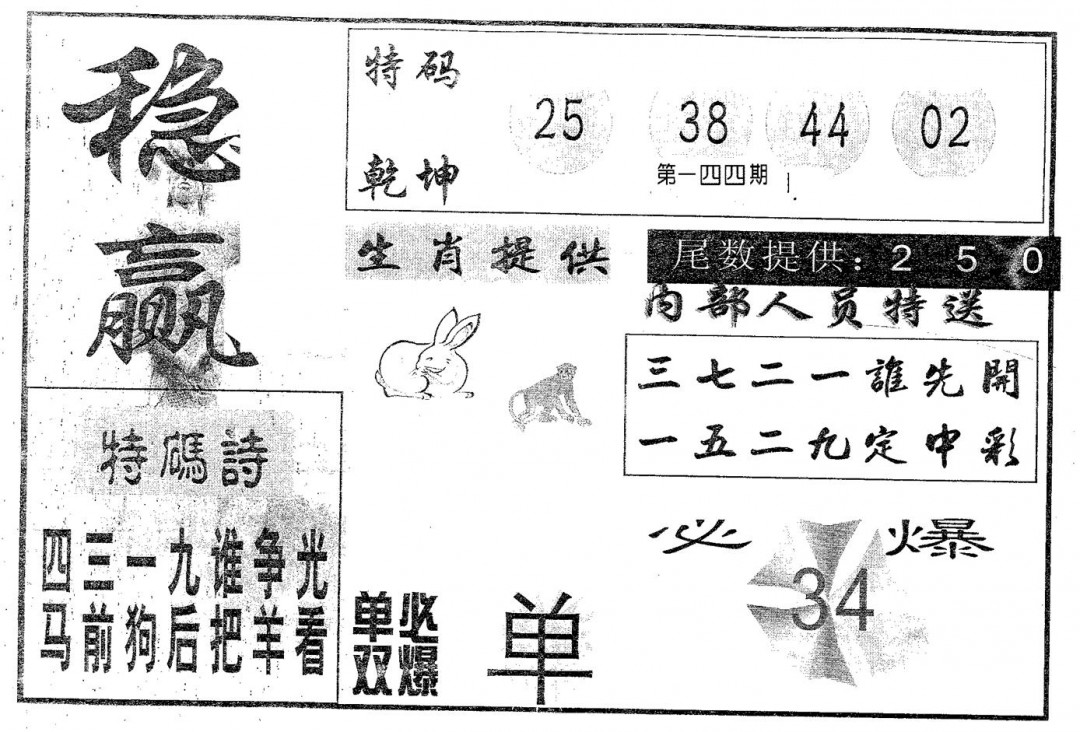 稳赢
特码
乾坤
25 38 44 02
第一四四期
生肖提供
尾数提供:2 5 0
内部人员特送
三七二一誰先開
一五二九定中彩
特碼詩
四三一九谁争光
马前狗后把羊看
单双
必爆
单
必爆
34